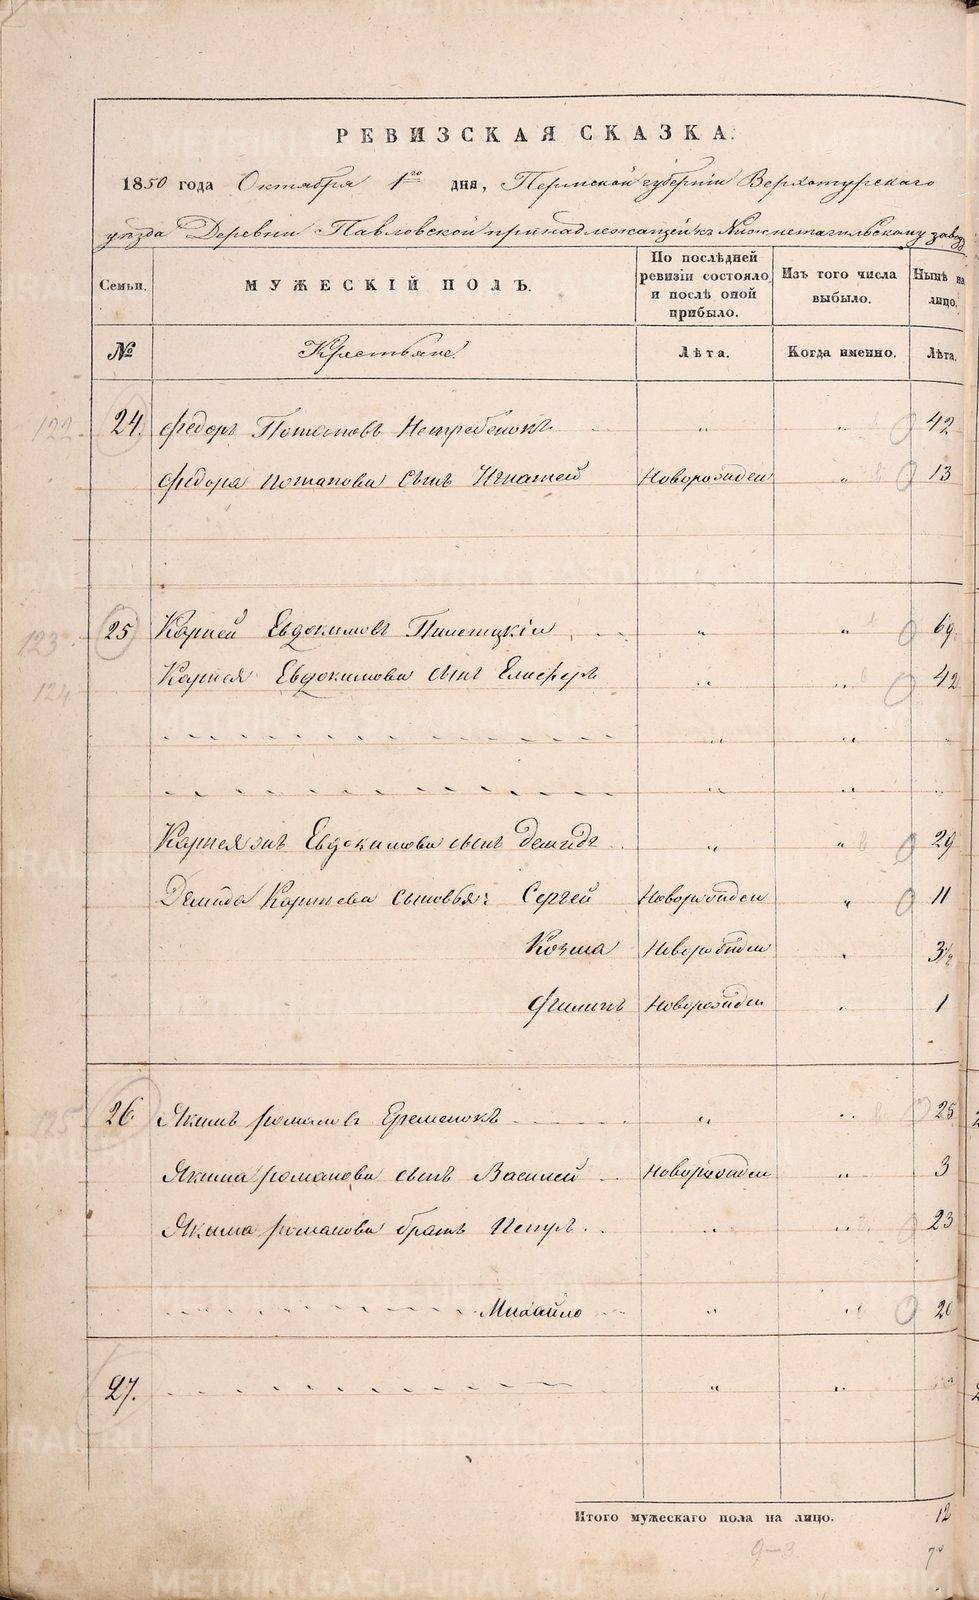 РЕВИЗСКАЯ СКАЗКА.
1850 года Октября 1го дня, Пермской губернии Верхотурского
уѣзда Деревни Павловской принадлежащей къ Нижнетагильскому заводу
Семьи. МУЖЕСКІЙ ПОЛЪ. По послѣдней ревизіи состояло и послѣ оной прибыло. Изъ того числа выбыло. Нынѣ на лицо.
№ Крестьяне. Лѣта. Когда именно. Лѣта.
122 24. Федоръ Потаповъ Нетребенокъ " " 42
Федора Потапова сынъ Игнатей Новорожден " 13
123 25 Карпей Евдокимовъ " " 69
124 Карпея Евдокимова сынъ Елисеръ " " 42
" " "
" " "
Карпея жъ Евдокимова сынъ Демидъ " " 29
Демида Карпеева сыновья: Сергей Новорожден " 11
Козма Новорожден " 3½
Филипъ Новорожден " 1
125 26. Якимъ Романовъ Еременокъ " " 25
Якима Романова сынъ Василей Новорожден " 3
Якима Романова братъ " " 23
Михайло " " 20
27. " " "
Итого мужескаго пола на лицо. 12
9—3
METRIKI.GASO-URAL.RU